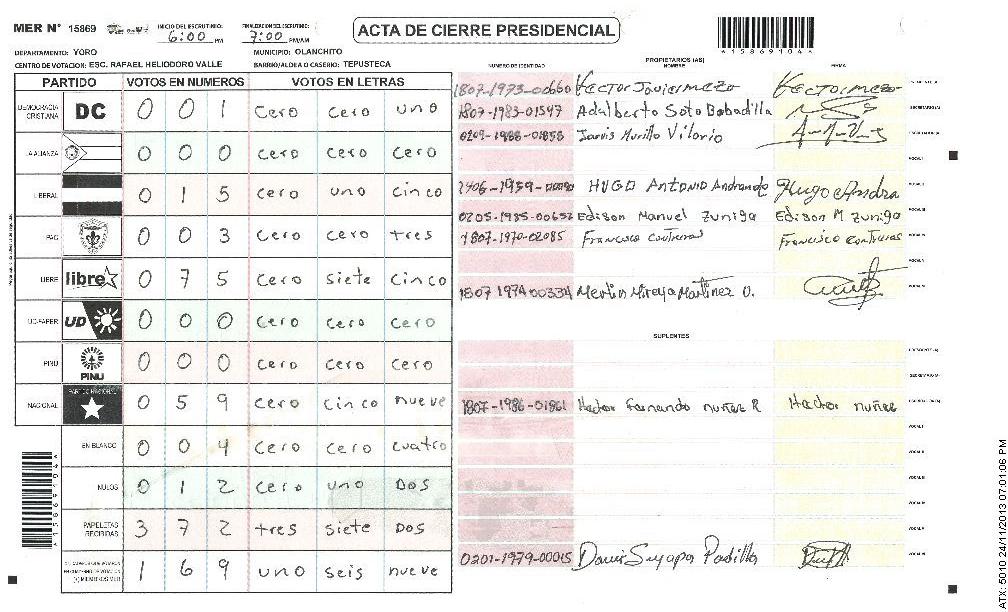 MER N° 15869
INICIO DEL ESCRUTINIO: 6:00 PM
FINALIZACION DEL ESCRUTINIO: 7:00 PM/AM
ACTA DE CIERRE PRESIDENCIAL
*15869104*
DEPARTAMENTO: YORO MUNICIPIO: OLANCHITO
CENTRO DE VOTACION: ESC. RAFAEL HELIODORO VALLE BARRIO/ALDEA O CASERIO: TEPUSTECA
PARTIDO VOTOS EN NUMEROS VOTOS EN LETRAS
DEMOCRACIA CRISTIANA DC 0 0 1 cero cero uno
LA ALIANZA 0 0 0 cero cero cero
LIBERAL 0 1 5 cero uno cinco
PAC 0 0 3 cero cero tres
LIBRE libre 0 7 5 cero siete cinco
UD-FAPER UD 0 0 0 cero cero cero
PINU PINU 0 0 0 cero cero cero
NACIONAL PARTIDO NACIONAL 0 5 9 cero cinco nueve
EN BLANCO 0 0 4 cero cero cuatro
NULOS 0 1 2 cero uno DOS
PAPELETAS RECIBIDAS 3 7 2 tres siete DOS
(+) MIEMBROS MER 1 6 9 uno seis nueve
PROPIETARIOS (AS)
NUMERO DE IDENTIDAD NOMBRE FIRMA
1807-1973-00660 Hector Javier mezo Hector mezo
1807-1983-01547 Adalberto Soto Bobadilla SECRETARIO(A)
0209-1988-01858 Jarvis Murillo Vilorio ESCRUTADOR(A)
VOCAL I
HUGO Antonio Andrande Hugo Andra
0205-1985-00652 Edison Manuel Zuniga Edison M Zuniga
1807-1970-02085 Francisco Contreras Francisco Contreras
1807 1974 00334 Merlin Mireya Martinez O.
SUPLENTES
1807-1986-01861 Hector Fernando nuñez R Hector nuñez
0201-1979-00015 Padilla
ATX: 5010 24/11/2013 07:01:06 PM